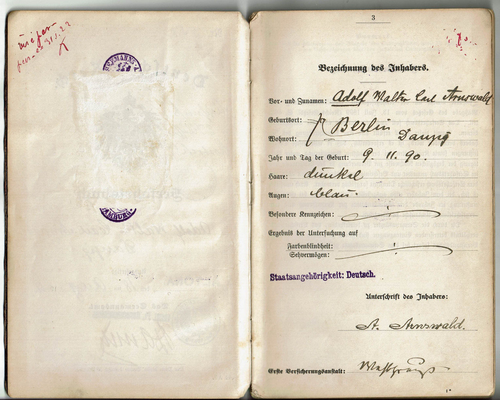 3
Bezeichnung des Inhabers.
Vor- und Zunamen: Adolf Walter Carl Arnswald
Geburtsort: Berlin
Wohnort: Danzig
Jahr und Tag der Geburt: 9. 11. 90.
Haare: dunkel
Augen: blau.
Besondere Kennzeichen:
Ergebnis der Untersuchung auf
Farbenblindheit:
Sehvermögen:
Staatsangehörigkeit: Deutsch.
Unterschrift des Inhabers:
A. Arnswald.
Erste Versicherungsanstalt: